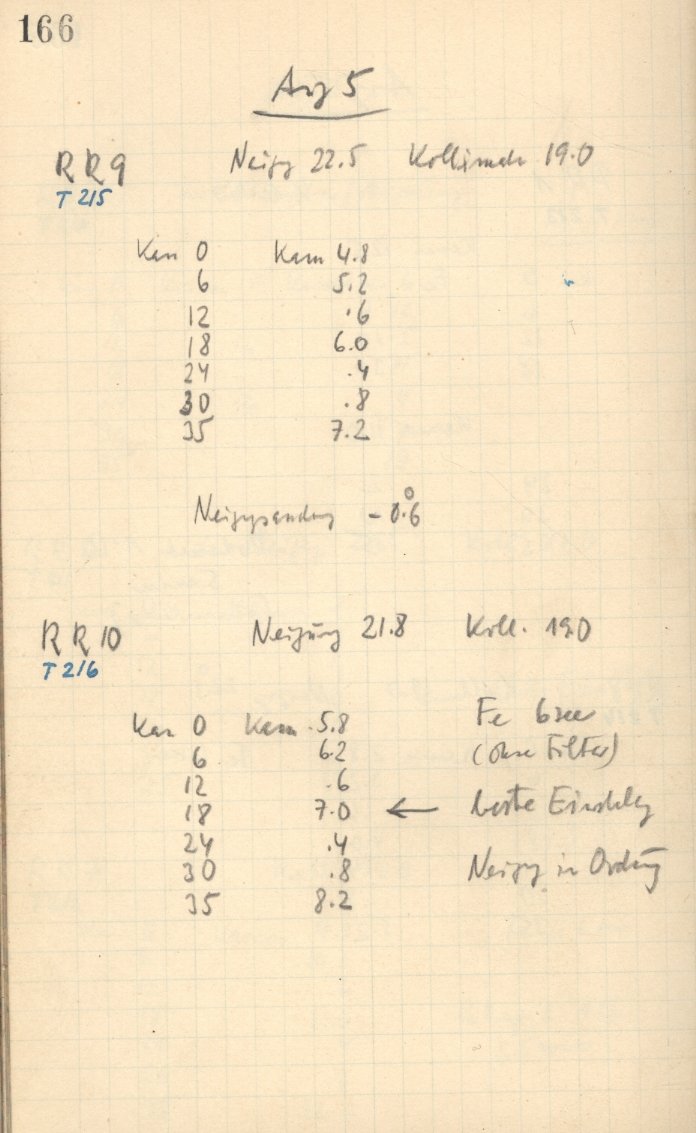 166
Aug 5
RR9 Neigg 22.5 Kollimator 19.0
T 215
Kas 0 Kam 4.8
6 5.2
12 .6
18 6.0
24 .4
30 .8
35 7.2
-0.6°
RR10 Neigung 21.8 Koll. 19.0
T 216
Kas 0 Kam 5.8 Fe 6 sec
6 6.2 (ohne Filter)
12 .6
18 7.0 ← beste Einstellg
24 .4
30 .8 Neigg in Ordng
35 8.2